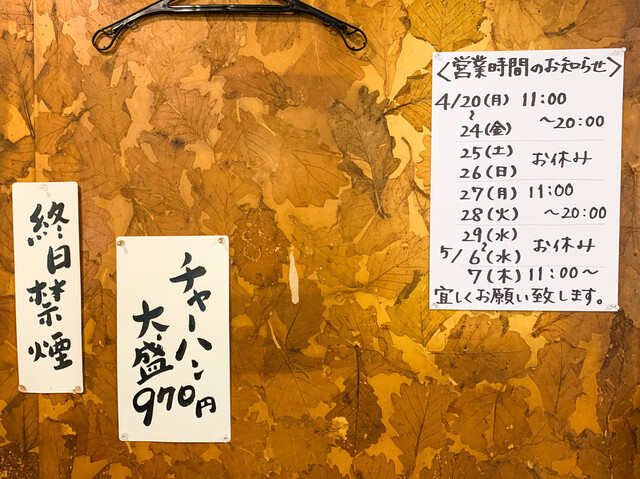 〈営業時間のお知らせ〉
4/20(月) 11:00
〜 〜20:00
24(金)
25(土) お休み
26(日)
27(月) 11:00
28(火) 〜20:00
29(水)
〜 お休み
5/6(水)
7(木) 11:00〜
宜しくお願い致します。
チャーハン
大盛
970円
終日禁煙